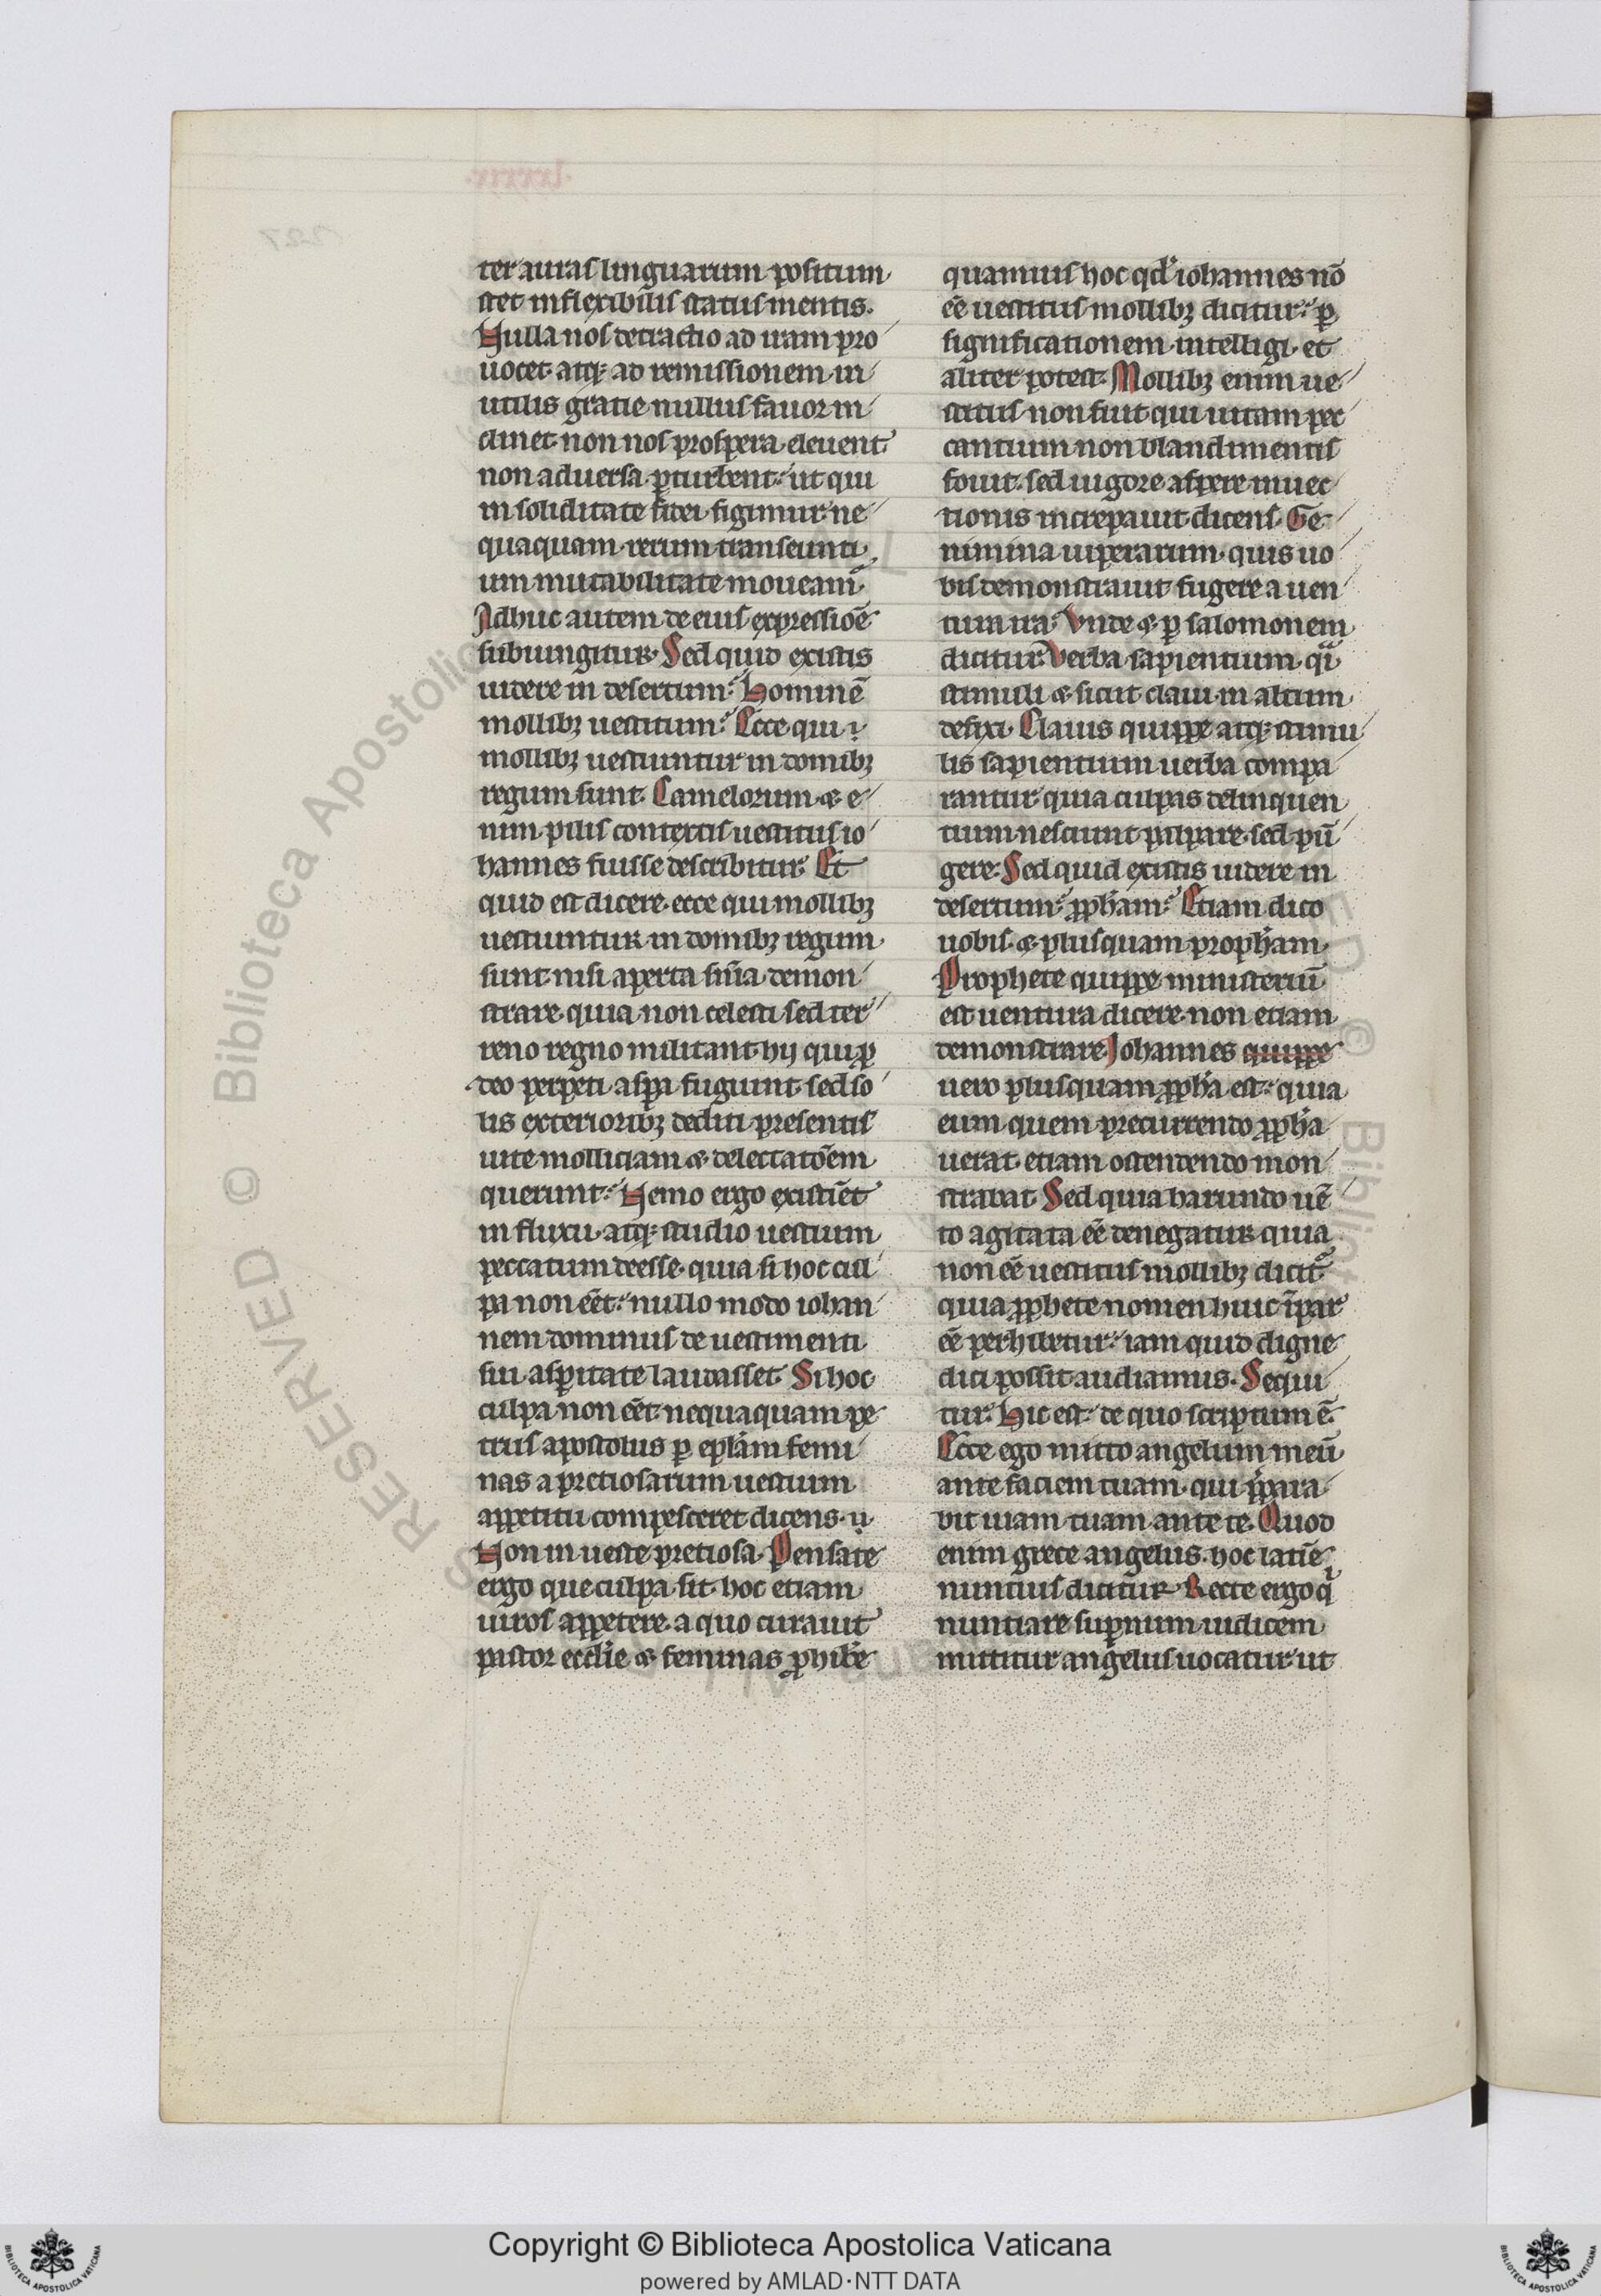 ter auras linguarum positum
stet inflexibilis status mentis.
Nulla nos detractio ad iram pro
uocet atqꝫ ad remissionem in
utilis gratie nullus fauor in
clinet non nos prospera eleuent
non aduersa ꝑturbent ut qui
in soliditate fidei figimur ne
quaquam rerum transeunti
um mutabilitate moueam᷑
Adhuc autem de eius expressiōe
subiungitur. Sed quid existis
uidere in desertum. Hominē
mollibꝫ uestitum. Ecce qui i
mollibꝫ uestiuntur in domibꝫ
regum sunt. Camelorum ⁊ e
nim pilis contextis uestitus io
hannes fuisse describitur. Et
quid est dicere. ecce qui mollibꝫ
uestiuntur in domibꝫ regum
sunt nisi aperta sn̄ia demon
strare quia non celesti sed ter
reno regno militant hij qui ꝓ
deo perpeti aspa fugiunt sed so
lis exterioribꝫ dediti presentis
uite molliciam ⁊ delectatōem
querunt. Nemo ergo existiēt
in fluxu atqꝫ studio uestium
peccatum deesse. quia si hoc cul
pa non eēt. nullo modo iohan
nem dominus de uestimenti
sui aspitate laudasset. Si hoc
culpa non eēt nequaquam pe
trus apostolus ꝑ epl̄am femi
nas a pretiosarum uestium
appetitu compesceret dicens. ii
Non in ueste pretiosa. Pensate
ergo que culpa sit. hoc etiam
uiros appetere. a quo curauit
pastor eccl̄ie ⁊ feminas ꝓhibe
quamuis hoc qd̄ iohannes nō
eē uestitus mollibꝫ dicitur. ꝑ
significationem intelligi. et
aliter potest. Mollibꝫ enim ue
stitus non fuit qui uitam pec
cantium non blandimentis
fouit. sed uigore aspere inuec
tionis increpauit dicens. Ge
nimina uiperarum. quis uo
bis demonstrauit fugere a uen
tura ira. Vnde ⁊ ꝑ salomonem
dicitur. Verba sapientium qͣi
stimuli ⁊ sicut claui in altum
defixi. Clauis quippe atqꝫ stimu
lis sapientium uerba compa
rantur quia culpas delinquen
tium nesciunt palpare. sed pū
gere. Sed quid existis uidere in
desertum. ꝓph̄am. Etiam dico
uobis. ⁊ plusquam proph̄am.
Prophete quippe ministeriū
est uentura dicere. non etiam
demonstrare. Johannes quippe
uero plusquam ꝓph̄a est. quia
eum quem precurrendo ꝓph̄a
uerat. etiam ostendendo mon
strabat. Sed quia harundo uē
to agitata eē denegatur quia
non eē uestitus mollibꝫ dicit᷑
quia ꝓphete nomen huic īpar
eē perhibetur. iam quid digne
dici possit audiamus. Sequi
tur. Hic est. de quo scriptum ē.
Ecce ego mitto angelum meū
ante faciem tuam. qui p̄para
bit uiam tuam ante te. Quod
enim grece angelus. hoc latīe
nuntius dicitur. Recte ergo qͥ
nuntiare supnum iudicem
mittitur angelus uocatur ut
lxxxix.
227
RESERVED © Biblioteca Apostolica
Copyright © Biblioteca Apostolica Vaticana
powered by AMLAD·NTT DATA
BIBLIOTECA APOSTOLICA VATICANA
BIBLIOTECA APOSTOLICA VATICANA